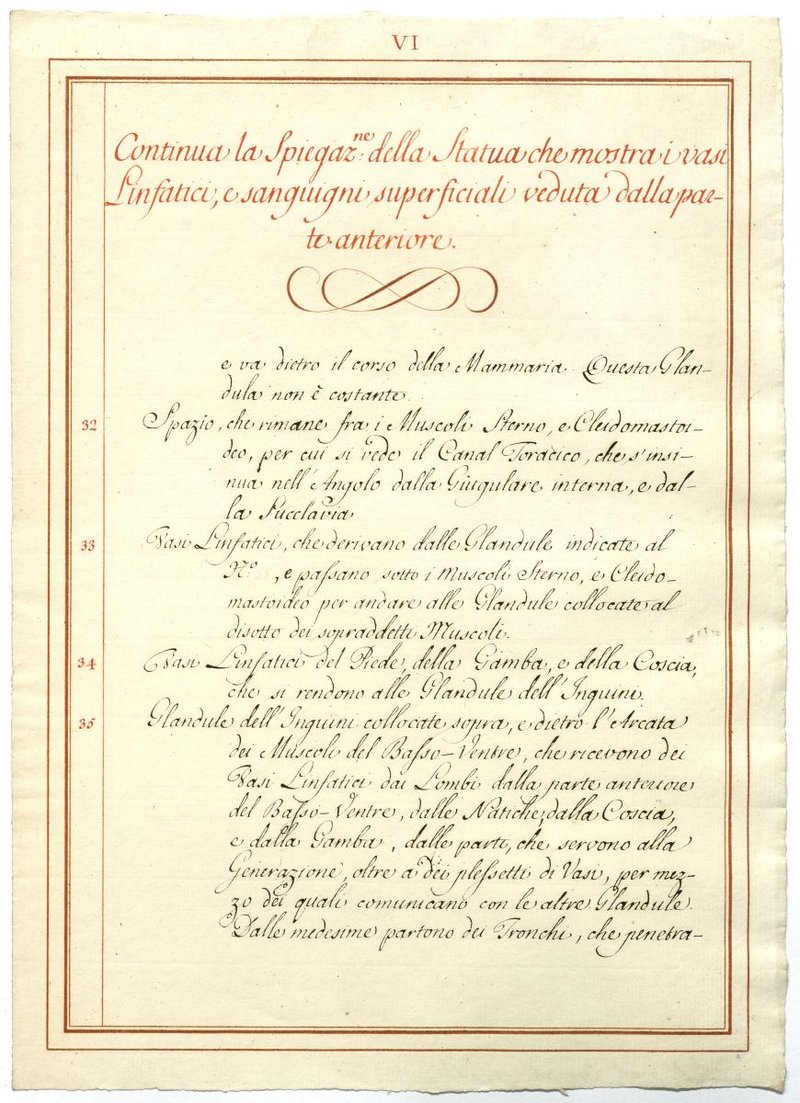 VI
Continua la Spiegaz:ne della Statua che mostra i vasi
Linfatici, e sanguigni superficiali veduta dalla par-
te anteriore.
e va dietro il corso della Mammaria. Questa Glan-
dula non è costante.
32 Spazio, che rimane fra i Muscoli Sterno, e Cleidomastoi-
deo, per cui si vede il Canal Toracico, che s'insi-
nua nell'Angolo dalla Giugulare interna, e dal-
la Succlavia
33 Vasi Linfatici, che derivano dalle Glandule indicate al
N.o , e passano sotto i Muscoli Sterno, e Cleido-
mastoideo per andare alle Glandule collocate al
disotto dei sopraddetti Muscoli.
34 Vasi Linfatici del Piede, della Gamba, e della Coscia,
che si rendono alle Glandule dell'Inguini.
35 Glandule dell'Inguini collocate sopra, e dietro l'Arcata
dei Muscoli del Basso-Ventre, che ricevono dei
Vasi Linfatici dai Lombi dalla parte anteriore
del Basso-Ventre, dalle Natiche, dalla Coscia,
e dalla Gamba, dalle parti, che servono alla
Generazione, oltre a dei plessetti di Vasi, per mez-
zo dei quali comunicano con le altre Glandule.
Dalle medesime partono dei Tronchi, che penetra-